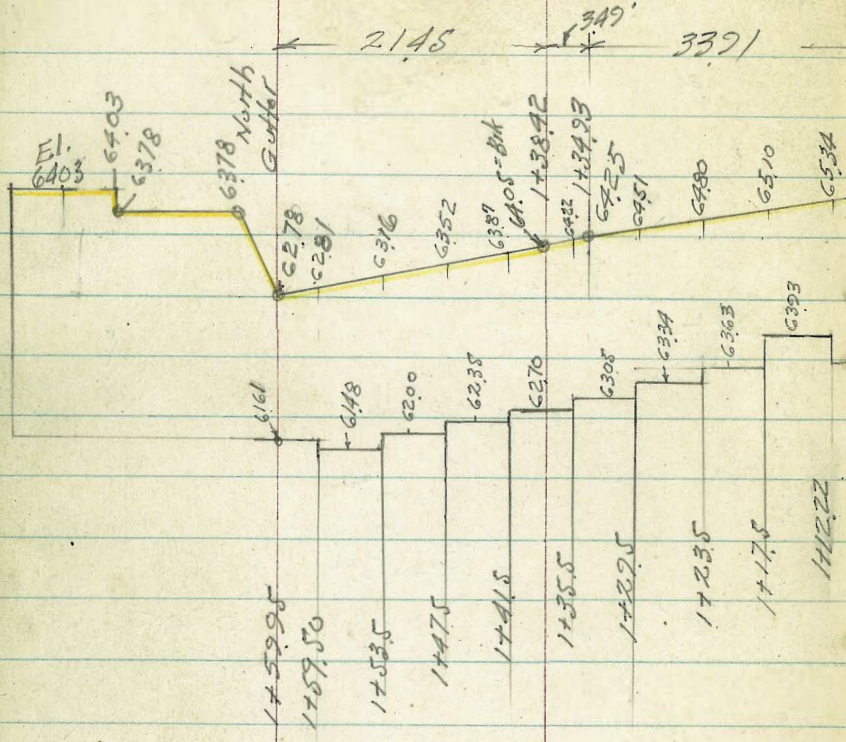 21.45
3.49'
33.91
El.
64.03
64.03
63.78
63.78 North
Gutter
62.78
62.81
63.16
63.52
63.87
64.05=Brk
1+38.42
64.22
1+34.93
64.25
64.51
64.80
65.10
65.34
61.61
61.48
62.00
62.35
62.70
63.05
63.34
63.63
63.93
1+59.95
1+59.50
1+53.5
1+47.5
1+41.5
1+35.5
1+29.5
1+23.5
1+17.5
1+12.22